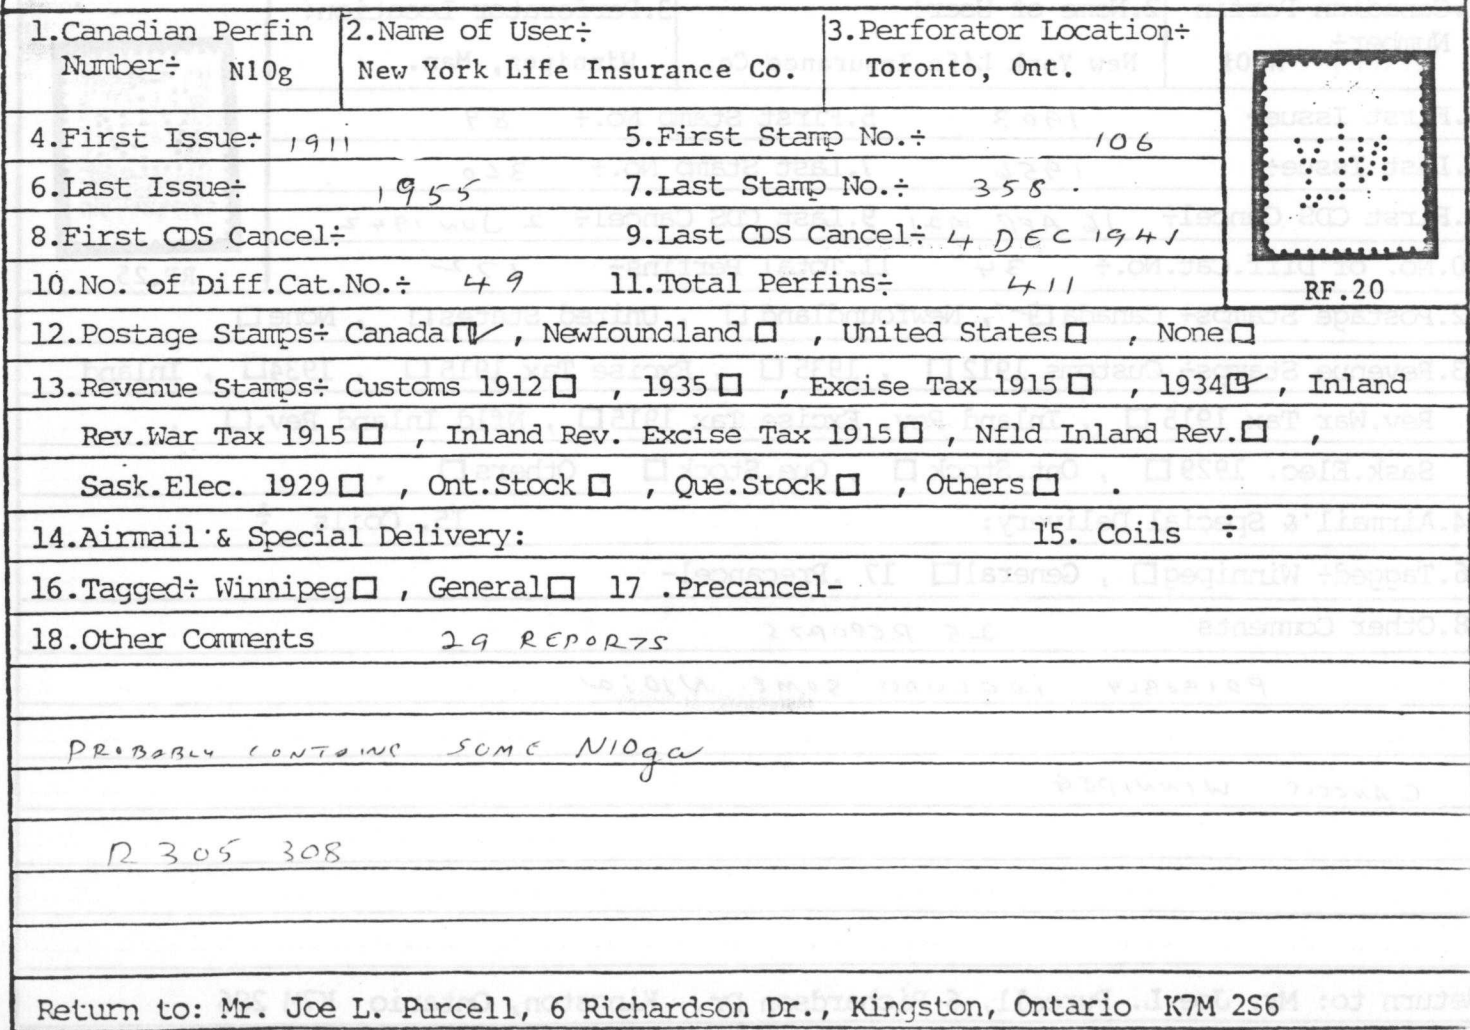 1.Canadian Perfin Number÷ N10g
2.Name of User÷
New York Life Insurance Co.
3.Perforator Location÷
Toronto, Ont.
4.First Issue÷ 1911 5.First Stamp No.÷ 106
6.Last Issue÷ 1955 7.Last Stamp No.÷ 358.
8.First CDS Cancel÷ 9.Last CDS Cancel÷ 4 DEC 1941
10.No. of Diff.Cat.No.÷ 49 11.Total Perfins÷ 411
RF.20
12.Postage Stamps÷ Canada ☑, Newfoundland ☐, United States ☐, None ☐
13.Revenue Stamps÷ Customs 1912 ☐, 1935 ☐, Excise Tax 1915 ☐, 1934 ☑, Inland
Rev.War Tax 1915 ☐, Inland Rev. Excise Tax 1915 ☐, Nfld Inland Rev. ☐,
Sask.Elec. 1929 ☐, Ont.Stock ☐, Que.Stock ☐, Others ☐.
14.Airmail & Special Delivery: 15. Coils ÷
16.Tagged÷ Winnipeg ☐, General ☐ 17 .Precancel-
18.Other Comments 29 REPORTS
PROBABLY CONTAINS SOME N10ga
R 305 308
Return to: Mr. Joe L. Purcell, 6 Richardson Dr., Kingston, Ontario K7M 2S6